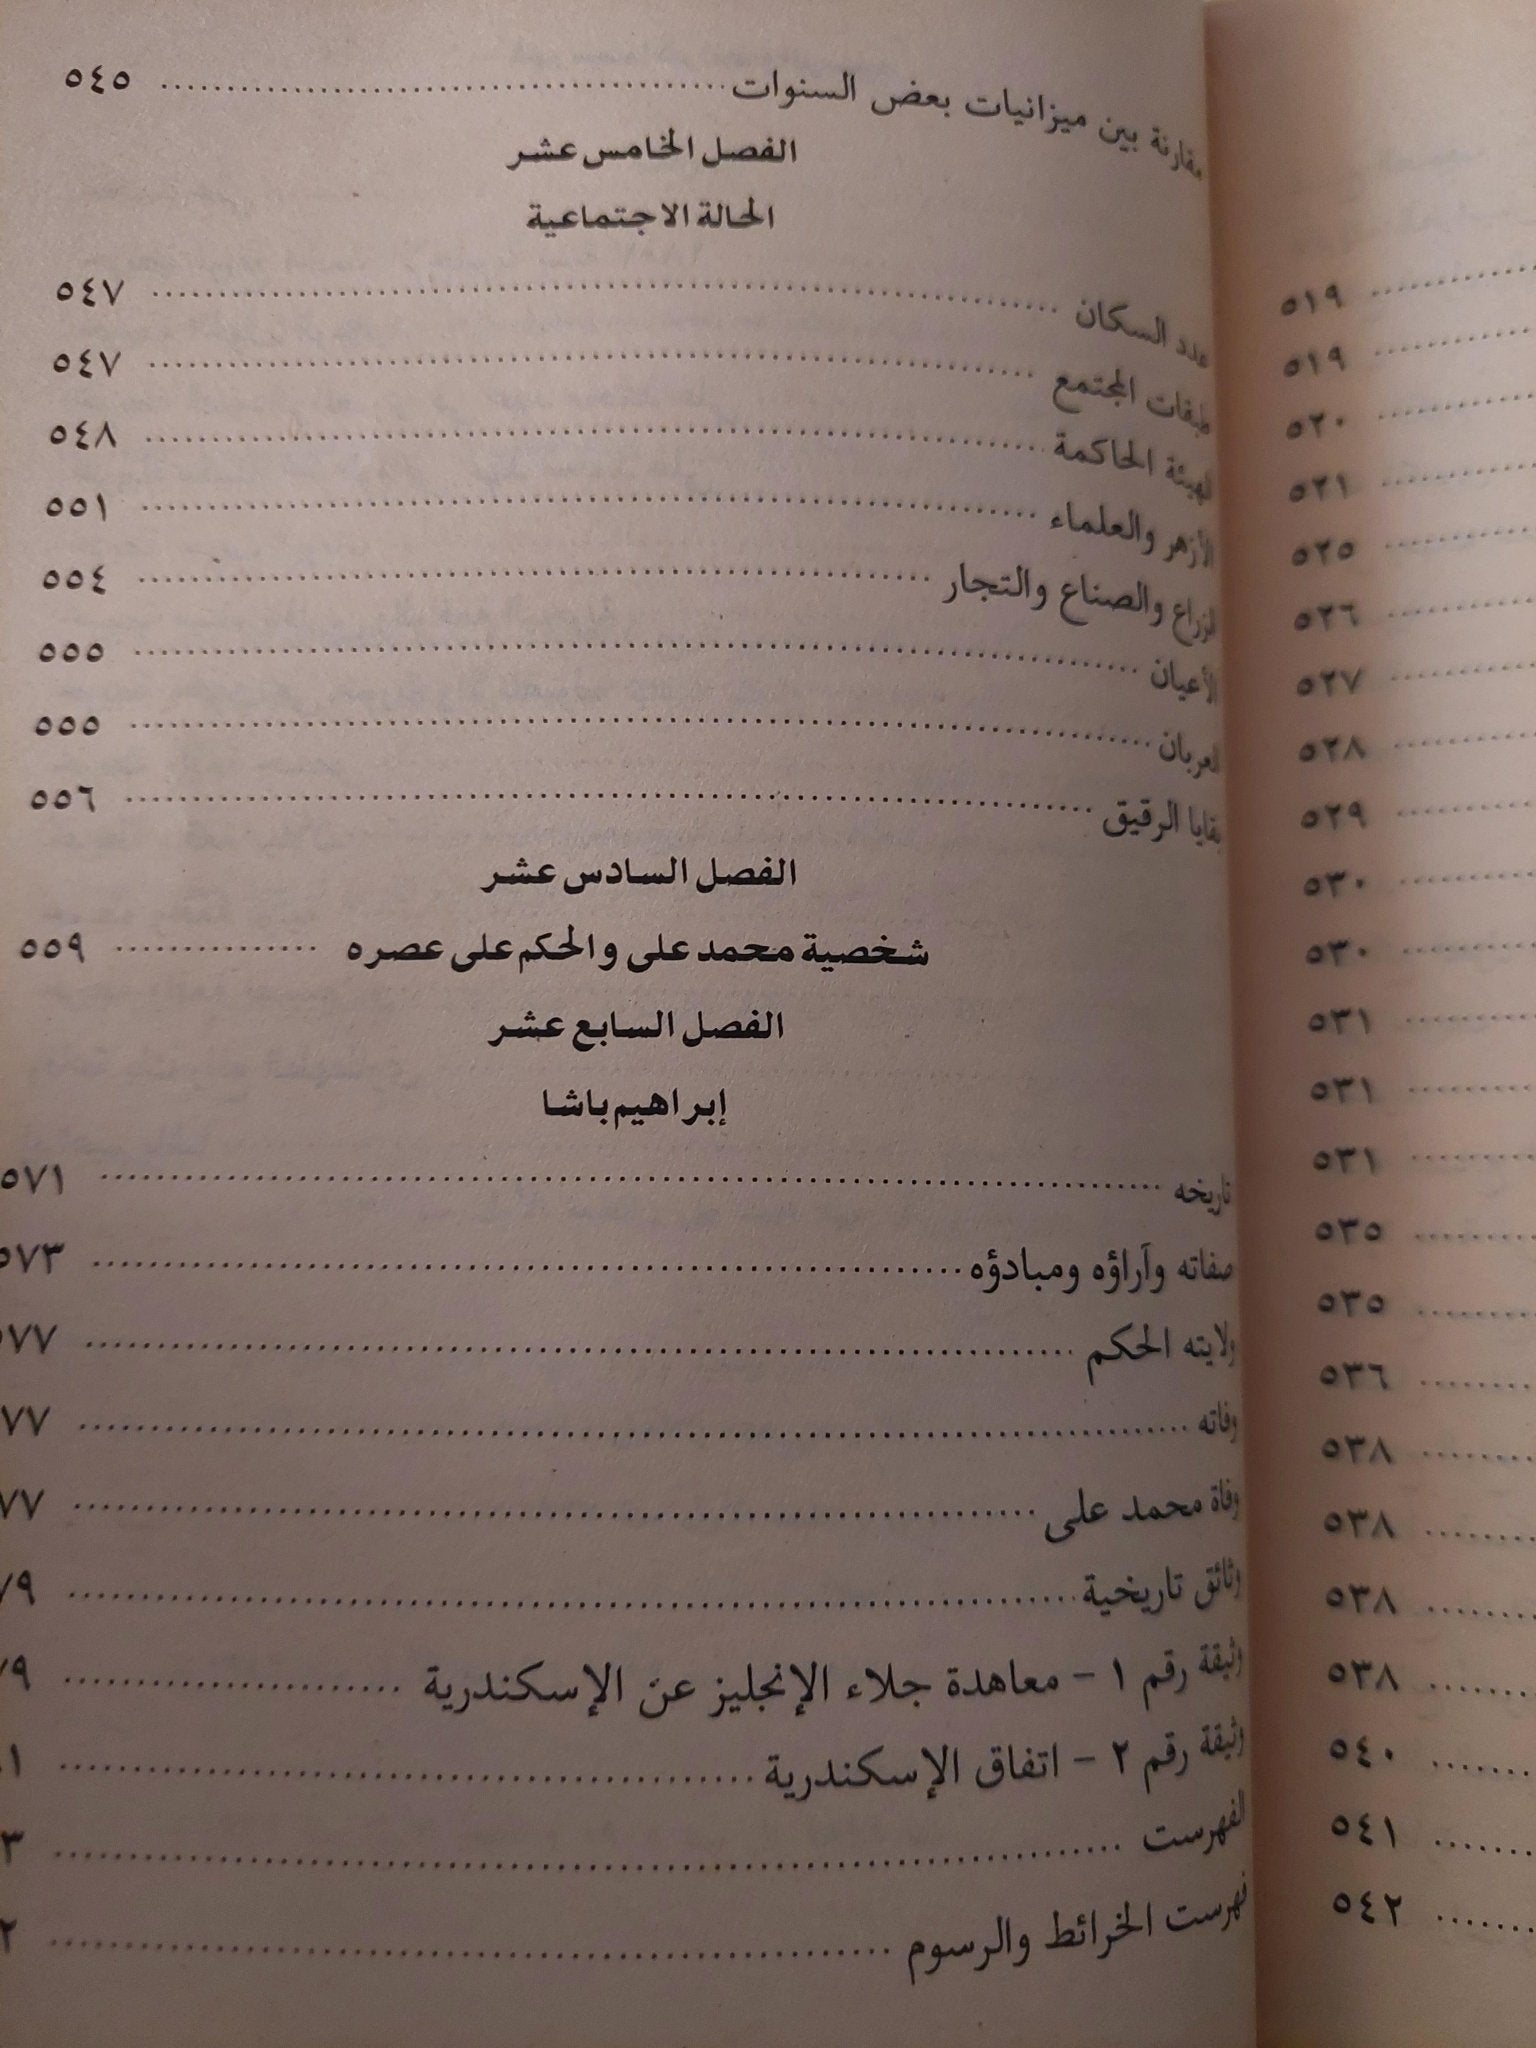 ٥١٩
٥١٩
٥٢٠
٥٢١
٥٢٥
٥٢٦
٥٢٧
٥٢٨
٥٢٩
٥٣٠
٥٣٠
٥٣١
٥٣١
٥٣١
٥٣٥
٥٣٥
٥٣٦
٥٣٨
٥٣٨
٥٣٨
٥٣٨
٥٤٠
٥٤١
٥٤٢
مقارنة بين ميزانيات بعض السنوات ٥٤٥
الفصل الخامس عشر
الحالة الاجتماعية
عدد السكان ٥٤٧
طبقات المجتمع ٥٤٧
الهيئة الحاكمة ٥٤٨
الأزهر والعلماء ٥٥١
الزراع والصناع والتجار ٥٥٤
الأعيان ٥٥٥
العربان ٥٥٥
بقايا الرقيق ٥٥٦
الفصل السادس عشر
شخصية محمد على والحكم على عصره ٥٥٩
الفصل السابع عشر
إبراهيم باشا
تاريخه ٥٧١
صفاته وآراؤه ومبادؤه ٥٧٣
ولايته الحكم ٥٧٧
وفاته ٧٧
وفاة محمد على ٧٧
وثائق تاريخية ٧٩
وثيقة رقم ١ - معاهدة جلاء الإنجليز عن الإسكندرية ٧٩
وثيقة رقم ٢ - اتفاق الإسكندرية ١
الفهرست ٣
فهرست الخرائط والرسوم ٢